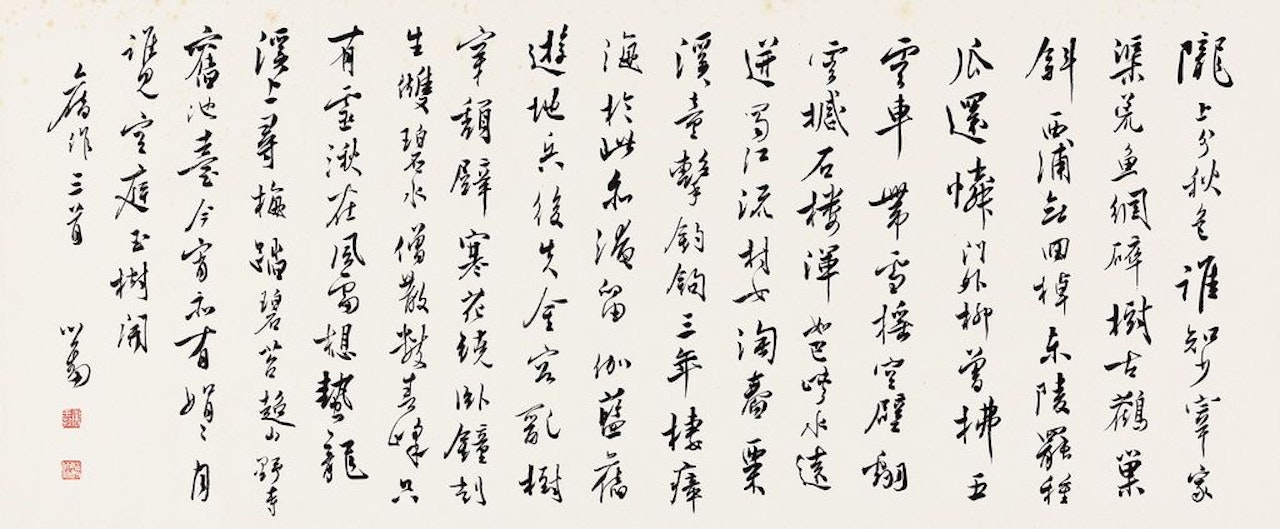 隴上分秋色誰知少宰家
渠荒魚網碎樹古鵲巢
斜西浦無回棹東陵罷種
瓜還憐門外柳曾拂五
雲車帶雪搖空壁翻
雲撼石樓渾如巴峽水遠
迸蜀江流村女淘畬粟
溪童擊釣鉤三年棲瘴
海於此亦淹留伽藍舊
遊地兵後失金容亂樹
穿頹壁寒花繞臥鐘
生雙碧水僧散數青峰只
有靈湫在風雷想蟄龍
溪上尋梅踏碧苔越山野寺
舊池臺今宵亦有娟〻月
誰見空庭玉樹開
舊作三首 心畬